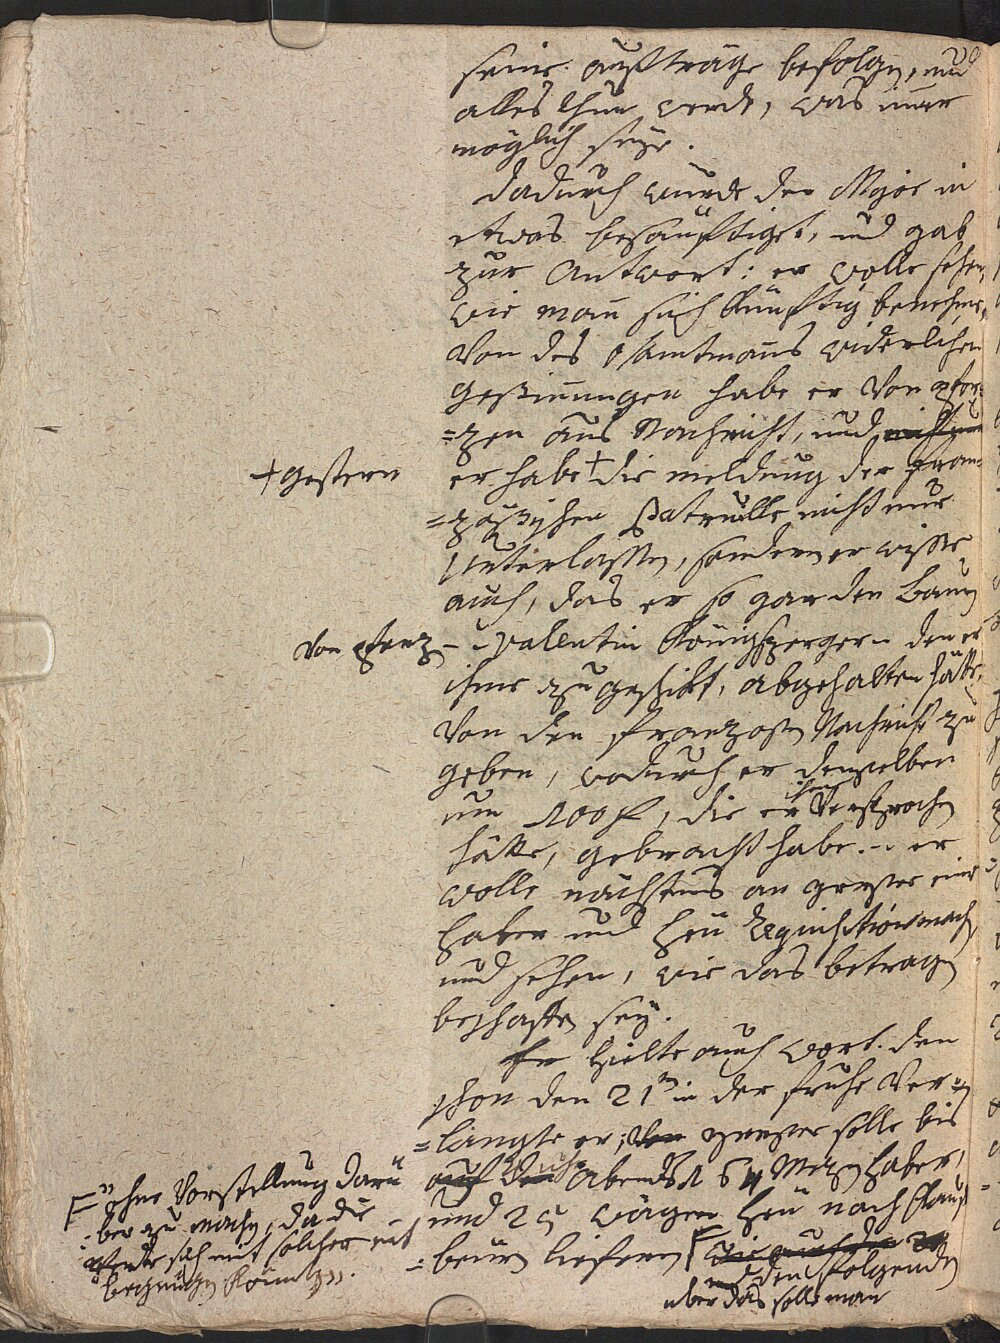 seine aufträge befolgen, und
alles thun werde, was nur
möglich seye.
dadurch wurde der Major in
etwas besänftiget, und gab
zur Antwort: er wolle sehen,
wie mann sich künftig benehme,
Von des Oberamtmanns widerlichen
Gesinnungen habe er Von pfor=
=zen aus Nachricht, und
er habe + die meldung der fran=
=zößischen Patrulle nicht nur
Unterlassen, sondern er wisse
auch, das er so gar den baur
Valentin Königsperger den er
ihme zugeschikt, abgehalten hätte,
Von den Franzosen Nachricht zu
geben, wodurch er denselben
um 100 f, die er ihm Versprochen
hätte, gebracht habe. er
wolle nächstens an eine
haber und heu Requisition machen,
und sehen, wie das betragen
beschaffen sey.
Er hielte auch wort. den
schon den 21ten in der fruhe Ver=
=langte er, solle bis
abends 6 haber,
und 25 wägen heu nach Kauf=
=beuren liefern
den folgenden
aber das solle man
+ gestern
Von pforz
ohne Vorstellung darü
=ber zu machen, da die
pferde sich mit solcher nit
begnügen könnten.